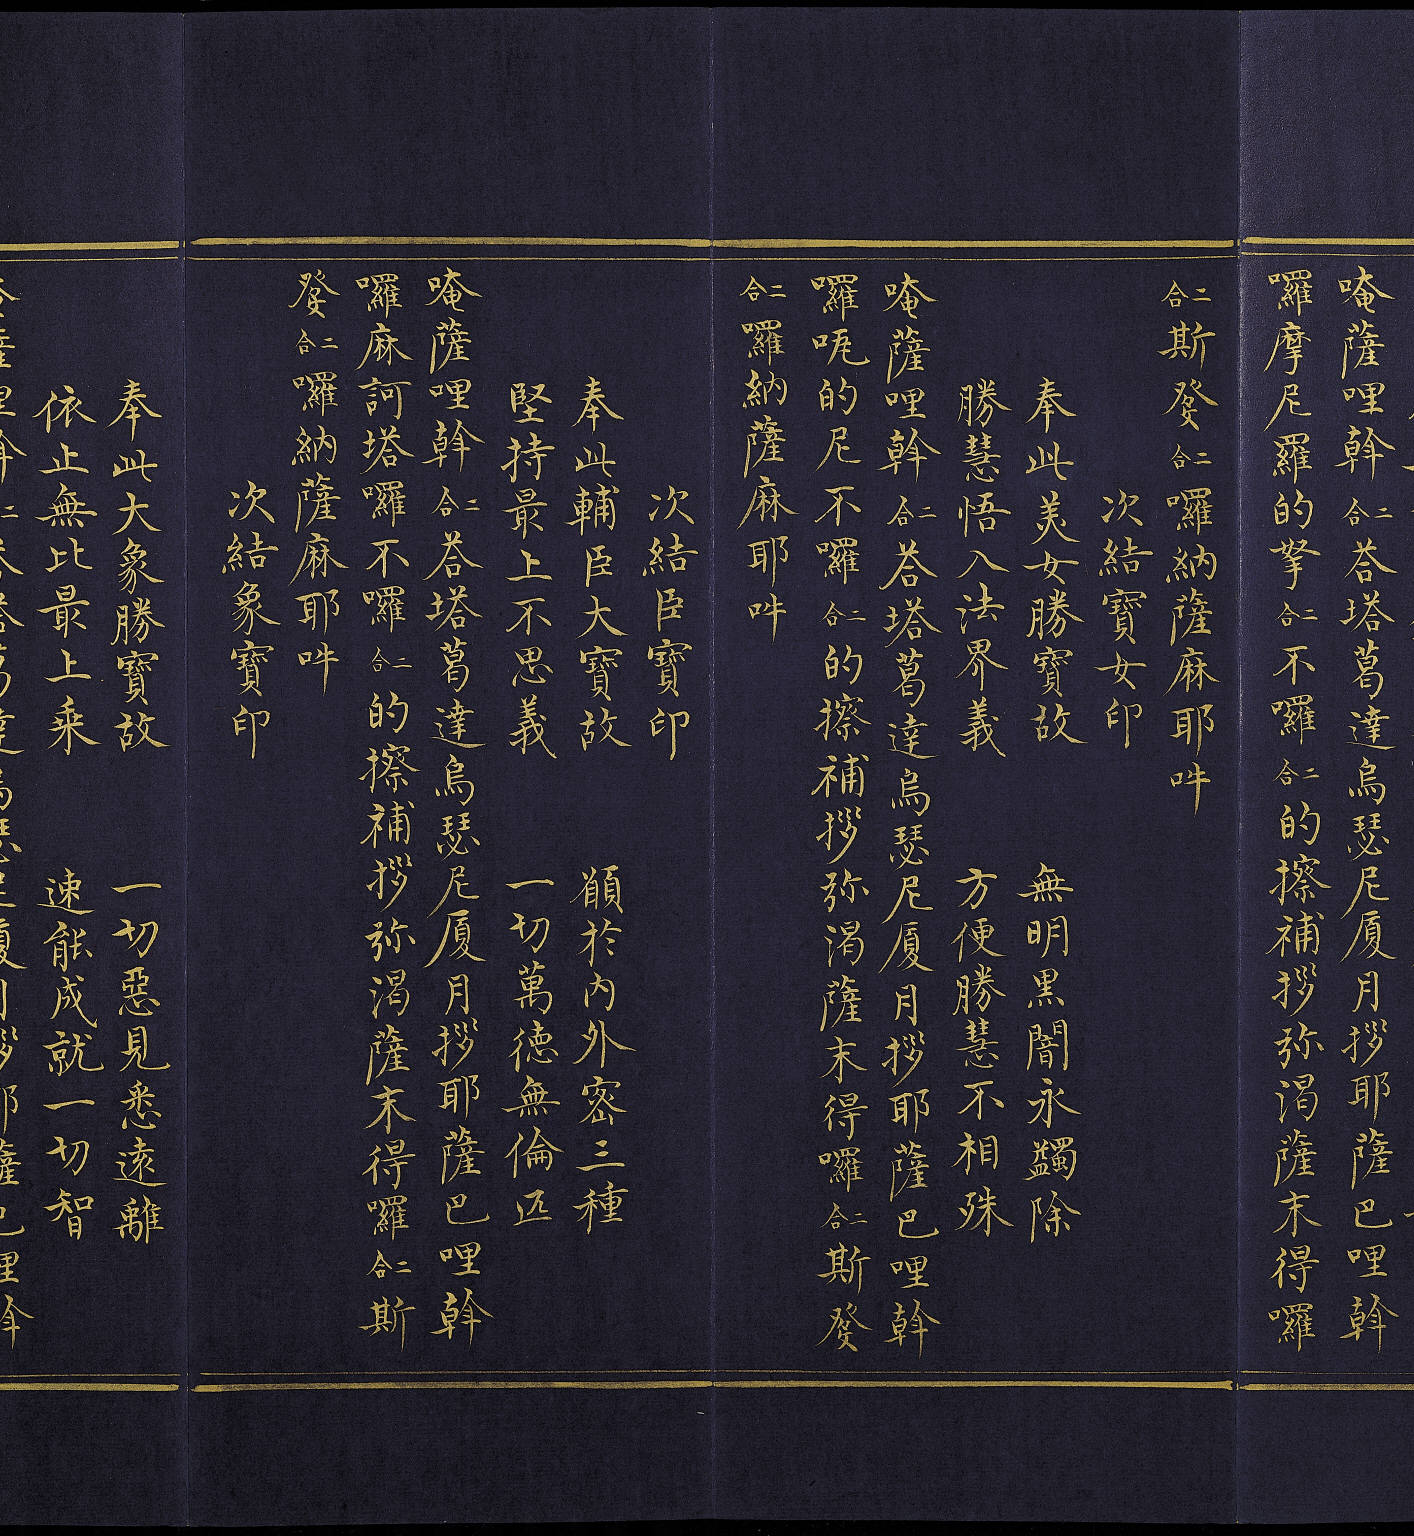 唵薩哩斡二合荅塔葛達烏瑟尼厦月拶耶薩巴哩斡
囉摩尼羅的拏二合不囉二合的擦補拶弥渴薩末得囉
二合斯癹二合囉納薩麻耶吽
次結寶女印
奉此美女勝寶故　無明黒闇永蠲除
勝慧悟入法界義　方便勝慧不相殊
唵薩哩斡二合荅塔葛達烏瑟尼厦月拶耶薩巴哩斡
囉呃的尼不囉二合的擦補拶弥渴薩末得囉二合斯癹
二合囉納薩麻耶吽
次結臣寶印
奉此輔臣大寶故　願於內外密三種
堅持最上不思義　一切萬德無倫匹
唵薩哩斡二合荅塔葛達烏瑟尼厦月拶耶薩巴哩斡
囉麻訶塔囉不囉二合的擦補拶弥渴薩末得囉二合斯
癹二合囉納薩麻耶吽
次結象寶印
奉此大象勝寶故　一切惡見悉遠離
依止無比最上乘　速能成就一切智